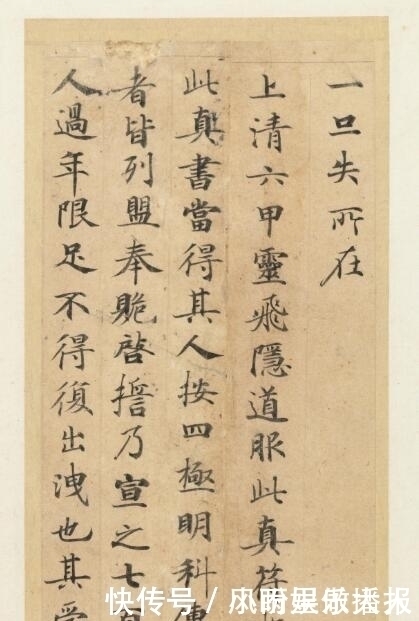 一旦失所在
上清六甲靈飛隱道服此真符
此真書當得其人按四極明科傳
者皆列盟奉䞈啓誓乃宣之七百
人過年限足不得復出洩也其受
快传号/